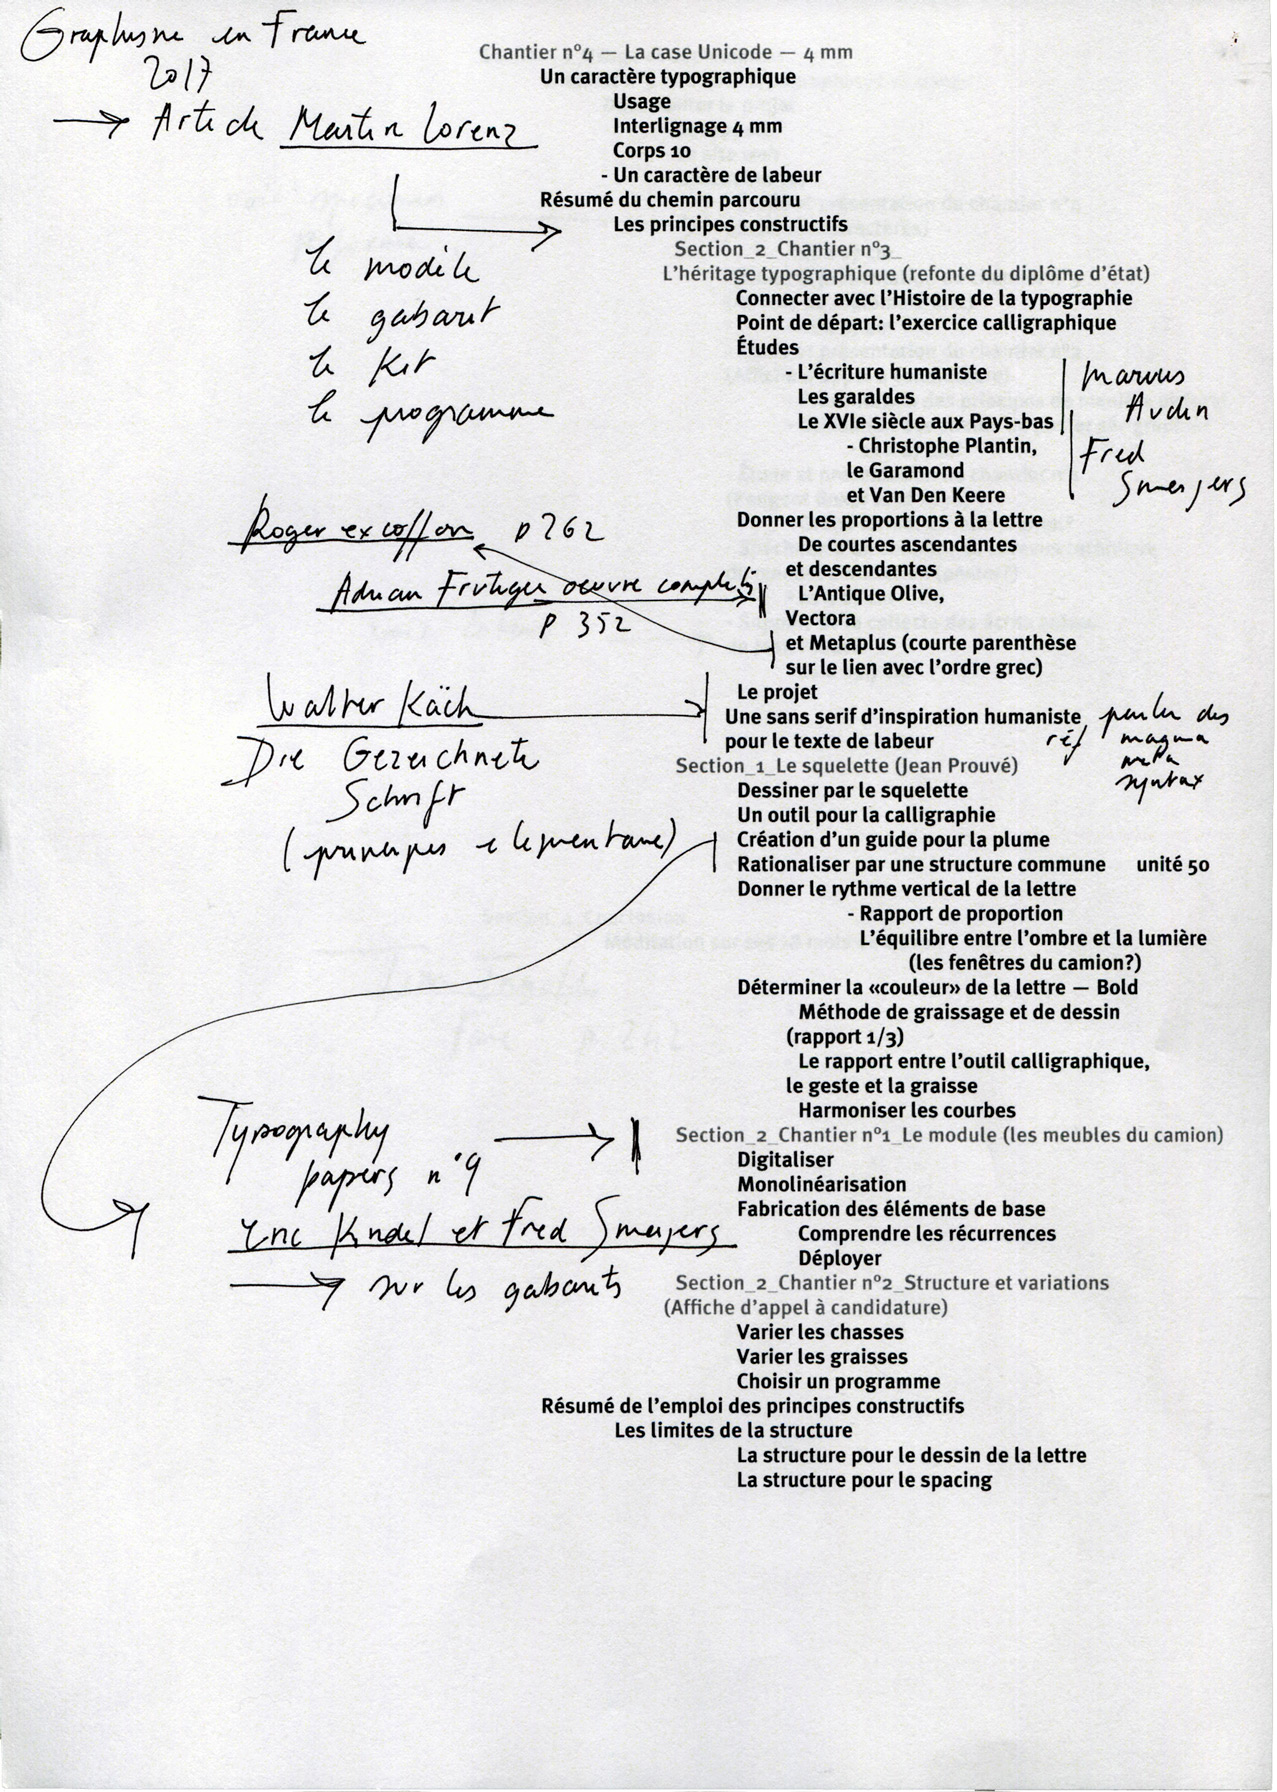 Graphisme en France
2017
→ Article Martin Lorenz
le modèle
le gabarit
le Kit
le programme
Roger excoffon p 262
Adrian Frutiger oeuvre complète
p 352
Walter Käch
Die Gezeichnete
Schrift
(principes élémentaire)
Typography
papers n°9
Eric Kindel et Fred Smeijers
→ sur les gabarits
Chantier n°4 — La case Unicode — 4 mm
Un caractère typographique
Usage
Interlignage 4 mm
Corps 10
- Un caractère de labeur
Résumé du chemin parcouru
Les principes constructifs
Section_2_Chantier n°3_
L'héritage typographique (refonte du diplôme d'état)
Connecter avec l'Histoire de la typographie
Point de départ: l'exercice calligraphique
Études
- L'écriture humaniste
Les garaldes
Le XVIe siècle aux Pays-bas
- Christophe Plantin,
le Garamond
et Van Den Keere
Donner les proportions à la lettre
De courtes ascendantes
et descendantes
L'Antique Olive,
Vectora
et Metaplus (courte parenthèse
sur le lien avec l'ordre grec)
Le projet
Une sans serif d'inspiration humaniste
pour le texte de labeur
Section_1_Le squelette (Jean Prouvé)
Dessiner par le squelette
Un outil pour la calligraphie
Création d'un guide pour la plume
Rationaliser par une structure commune unité 50
Donner le rythme vertical de la lettre
- Rapport de proportion
L'équilibre entre l'ombre et la lumière
(les fenêtres du camion?)
Déterminer la «couleur» de la lettre — Bold
Méthode de graissage et de dessin
(rapport 1/3)
Le rapport entre l'outil calligraphique,
le geste et la graisse
Harmoniser les courbes
Section_2_Chantier n°1_Le module (les meubles du camion)
Digitaliser
Monolinéarisation
Fabrication des éléments de base
Comprendre les récurrences
Déployer
Section_2_Chantier n°2_Structure et variations
(Affiche d'appel à candidature)
Varier les chasses
Varier les graisses
Choisir un programme
Résumé de l'emploi des principes constructifs
Les limites de la structure
La structure pour le dessin de la lettre
La structure pour le spacing
Marcus
Fred
Smeijers
parler des
réf magma
meta
syntax